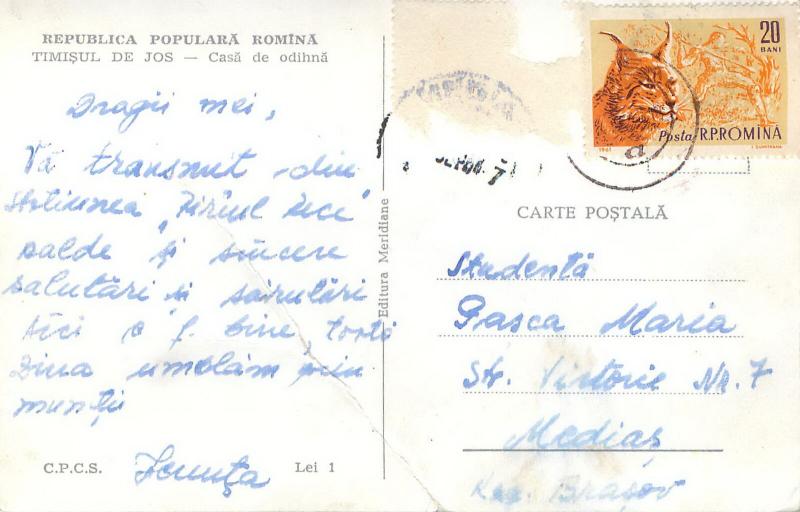 REPUBLICA POPULARĂ ROMÎNĂ
TIMIȘUL DE JOS — Casă de odihnă
Dragii mei,
Vă transmit din
stațiunea „Pîrîul Rece"
calde și sincere
salutări și sărutări
Aici e f. bine, toată
ziua umblăm prin
munții
C.P.C.S.
Lei 1
Editura Meridiane
20
BANI
Posta R.P.ROMÎNĂ
1961
CARTE POȘTALĂ
Studentă
Pasca Maria
Str. Victorie Nr. 7
Mediaș
Reg. Brașov